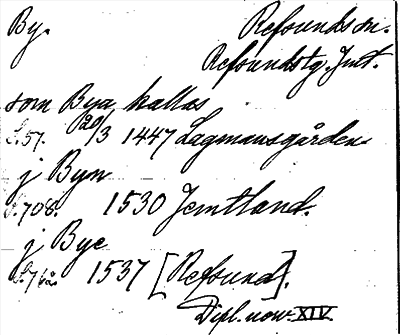 By. Refsunds sn.
Refsundstg. Jmt.
som Bya kallas
S. 57. 20/3 1447 Lagmansgården
j Byn
S. 708. 1530 Jemtland.
j Bye
1537 [Refsund].
Dipl. norv. XIV.